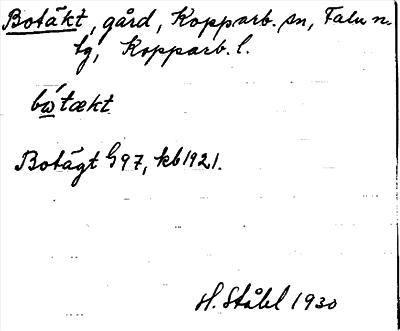 Botäkt, gård, Kopparb. sn, Falu n.
tg, Kopparb. l.
bώtækt
Botägt G97, kb 1921.
H. Ståhl 1930